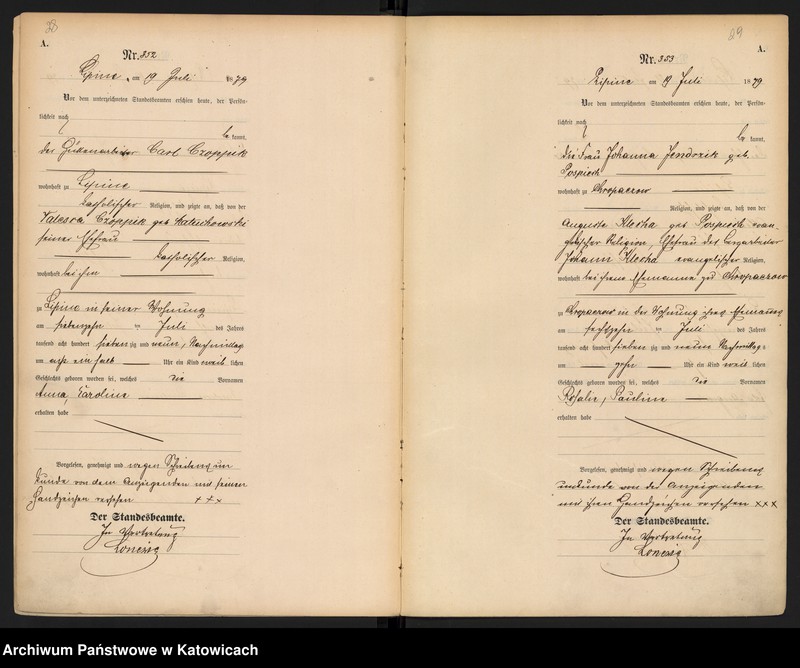 38
A.
Nr. 352
Lipine, am 19 Juli 1879
Vor dem unterzeichneten Standesbeamten erschien heute, der Persön-
lichkeit nach
be kannt,
der Hüttenarbeiter Carl Czoppik
wohnhaft zu Lipine
katholischer Religion, und zeigte an, daß von der
Valesca Czoppik geb
seiner Ehefrau
katholischer Religion,
wohnhaft bei ihm
zu Lipine in seiner Wohnung
am siebenzehn ten Juli des Jahres
tausend acht hundert sieben zig und neun, Nachmittag
um ein halb Uhr ein Kind weib lichen
Geschlechts geboren worden sei, welches die Vornamen
Anna, Caroline
erhalten habe
Vorgelesen, genehmigt und wegen Schreibens un
kunde von dem Anzeigenden mit seinen
Handzeichen versehen +++
Der Standesbeamte.
In Vertretung
39
A.
Nr. 353
Lipine am 19 Juli 1879
Vor dem unterzeichneten Standesbeamten erschien heute, der Persön-
lichkeit nach
be kannt,
die Frau Johanna Jendrzik geb.
Pospiech
wohnhaft zu Chropaczow
Religion, und zeigte an, daß von der
Auguste Klecha geb Pospiech evan-
gelischer Religion, Ehefrau des
Johann Klecha evangelischer Religion,
wohnhaft bei ihrem Ehemanne zu Chropaczow
zu Chropaczow in der Wohnung ihres Ehemanns
am sechszehn ten Juli des Jahres
tausend acht hundert sieben zig und neun Nachmittag-
um zehn Uhr ein Kind weib lichen
Geschlechts geboren worden sei, welches die Vornamen
Rosalie, Pauline
erhalten habe
Vorgelesen, genehmigt und wegen Schreibens
unkunde von der Anzeigenden
mit ihren Handzeichen versehen xxx
Der Standesbeamte.
In Vertretung
Archiwum Państwowe w Katowicach